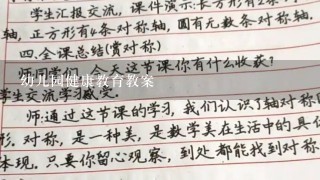 学生汇报交流，课件演示：长方形有2条
轴，正方形有4条对称轴，圆有无数条对称轴.
四.全课总结(赏对称)
今天这节课你有什么收获?
幼儿园健康教育教案
学生交流学习
师:通过这节课的学习，我们认识了轴对称
形.对称，是一种美，是数学美在生活中的具
体现.只要你留心观察，到处都能找到对称